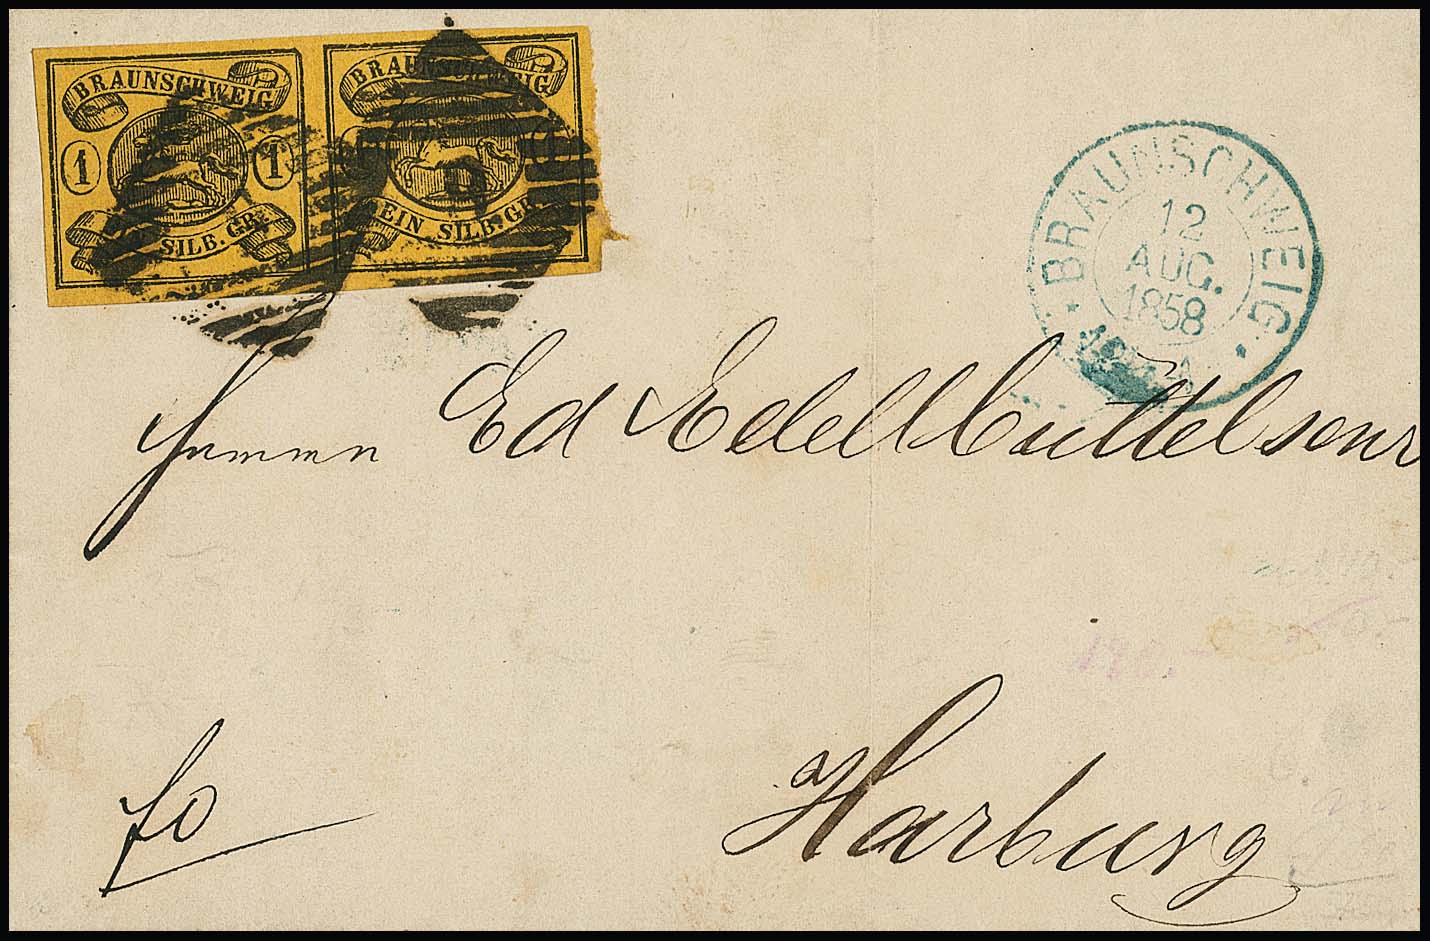 BRAUNSCHWEIG
1 1
SILB. GR.
BRAUNSCHWEIG
EIN SILB. GR.
BRAUNSCHWEIG
12
AUG.
1858
Herrn Ed Edel Büttelsen
fo
Harburg